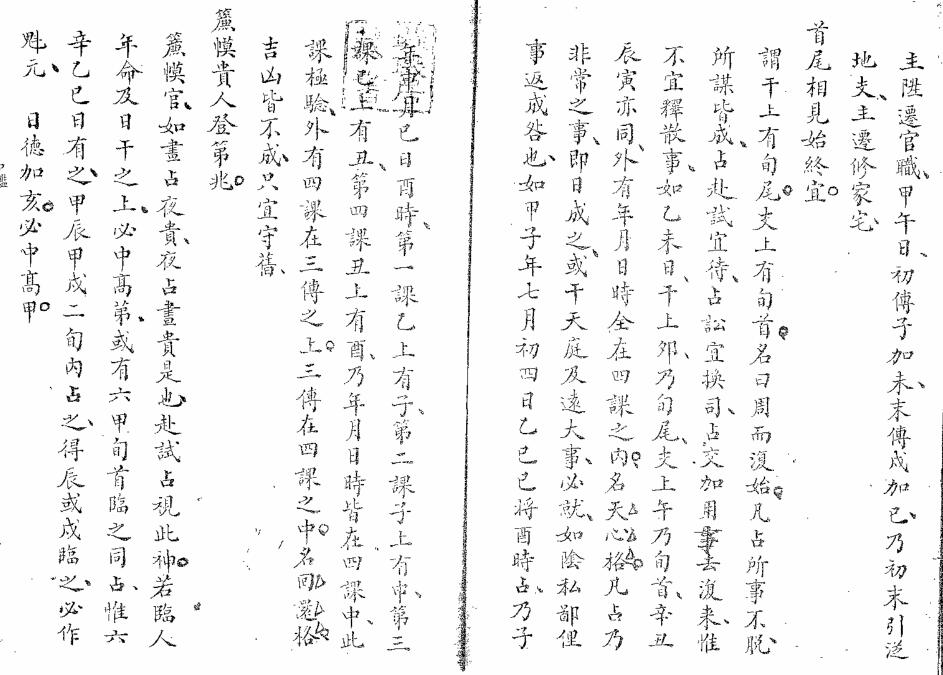 主陞遷官職、甲午日、初傳子加未、末傳戌加巳、乃初末引從
地支、主遷修家宅、
首尾相見始終宜。
謂干上有旬尾。支上有旬首。名曰周而復始。凡占所事不脱、
所謀皆成、占赴試宜待、占訟宜換司、占交加用事去復来、惟
不宜釋散事、如乙未日、干上夘、乃旬尾、支上午乃旬首、辛丑
辰寅亦同、外有年月日時全在四課之内。名天心格。凡占乃
非常之事、即日成之、或干天庭及遠大事、必就、如陰私鄙俚
事返成咎也、如甲子年七月初四日乙巳巳将酉時占、乃子
年申月巳日酉時、第一課乙上有子、第二課子上有申、第三
課巳上有丑、第四課丑上有酉、乃年月日時皆在四課中、此
課極騐、外有四課在三傳之上。三傳在四課之中。名回還格
吉凶皆不成、只宜守舊、
簾幙貴人登第兆。
簾幙官、如晝占夜貴、夜占晝貴是也、赴試占視此神。若臨人
年命及日干之上、必中髙第、或有六甲旬首臨之同占、惟六
辛乙巳日有之、甲辰甲戌二旬内占之、得辰或戌臨之、必作
魁元、日德加亥。必中髙甲。